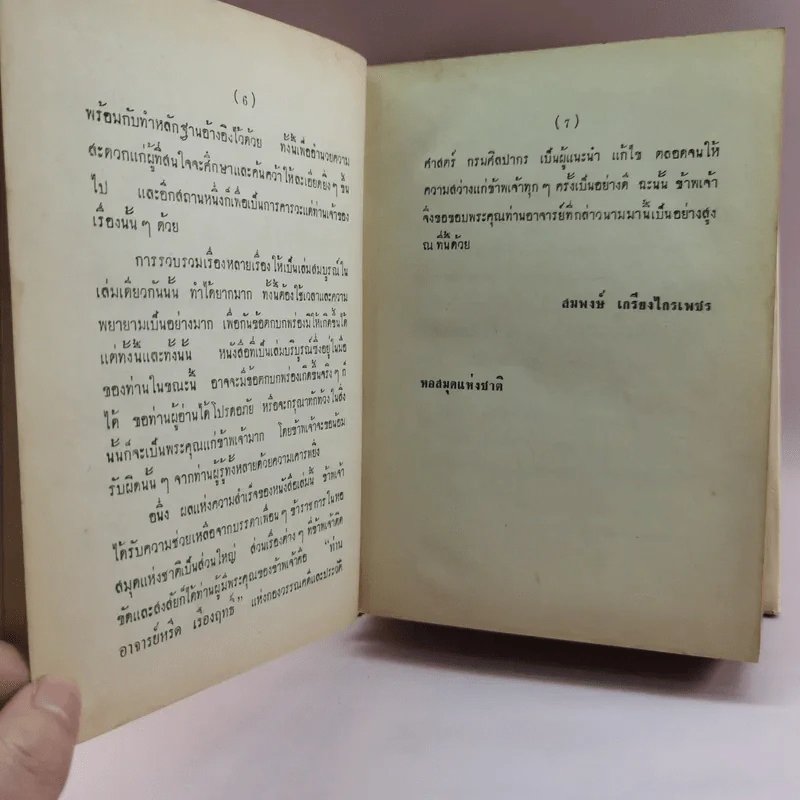 (6)
พร้อมกับทำหลักฐานอ้างอิงไว้ด้วย ทั้งนี้เพื่ออำนวยความ
สะดวกแก่ผู้ที่สนใจจะศึกษาและค้นคว้าให้ละเอียดยิ่งๆ ขึ้น
ไป และอีกสถานหนึ่งก็เพื่อเป็นการคารวะแด่ท่านเจ้าของ
เรื่องนั้นๆ ด้วย
การรวบรวมเรื่องหลายเรื่องให้เป็นเล่มสมบูรณ์ใน
เล่มเดียวกันนั้น ทำได้ยากมาก ทั้งนี้ต้องใช้เวลาและความ
พยายามเป็นอย่างมาก เพื่อกันข้อตกบกพร่องมิให้เกิดขึ้นได้
แต่ทั้งนี้และทั้งนั้น หนังสือที่เป็นเล่มบริบูรณ์ซึ่งอยู่ในมือ
ของท่านในขณะนี้ อาจจะมีข้อตกบกพร่องเกิดขึ้นจริงๆ ก็
ได้ ขอท่านผู้อ่านได้โปรดอภัย หรือจะกรุณาทักท้วงในสิ่ง
นั้นก็จะเป็นพระคุณแก่ข้าพเจ้ามาก โดยข้าพเจ้าจะขอน้อม
รับผิดนั้นๆ จากท่านผู้รู้ทั้งหลายด้วยความเคารพยิ่ง
อนึ่ง ผลแห่งความสำเร็จของหนังสือเล่มนี้ ข้าพเจ้า
ได้รับความช่วยเหลือจากบรรดาเพื่อนๆ ข้าราชการในหอ
สมุดแห่งชาติเป็นส่วนใหญ่ ส่วนเรื่องต่างๆ ที่ข้าพเจ้าติด
ขัดและสงสัยก็ได้ท่านผู้มีพระคุณของข้าพเจ้าคือ "ท่าน
อาจารย์หรีด เรืองฤทธิ์" แห่งกองวรรณคดีและประวัติ
(7)
ศาสตร์ กรมศิลปากร เป็นผู้แนะนำ แก้ไข ตลอดจนให้
ความสว่างแก่ข้าพเจ้าทุกๆ ครั้งเป็นอย่างดี ฉะนั้น ข้าพเจ้า
จึงขอขอบพระคุณท่านอาจารย์ที่กล่าวนามมานี้เป็นอย่างสูง
ณ ที่นี้ด้วย
สมพงษ์ เกรียงไกรเพชร
หอสมุดแห่งชาติ